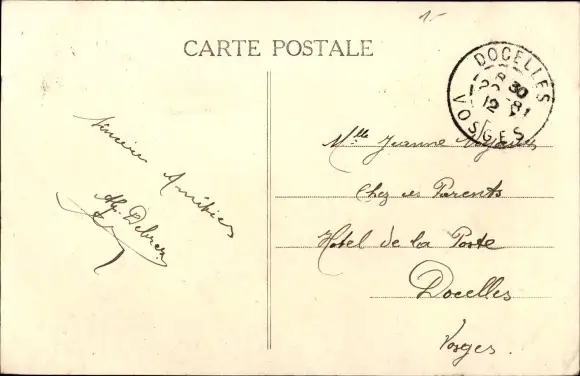 1-
CARTE POSTALE
DOCELLES
VOSGES
Sincères Amitiés
Mlle Jeanne
Chez ses Parents
Hotel de la Poste
Docelles
Vosges.